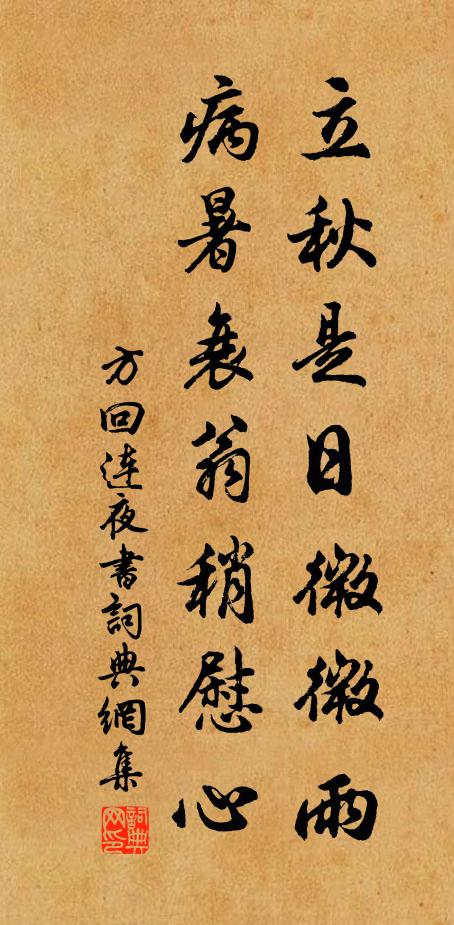 立秋是日微微雨
病暑衰翁稍慰心
方回连夜書詞典網集
詞典网印